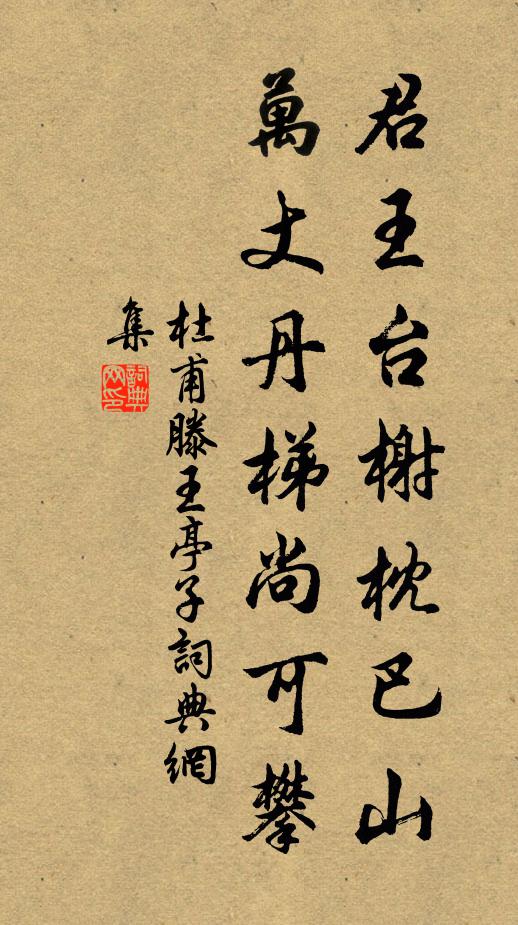 君王台榭枕巴山
萬丈丹梯尚可攀
杜甫滕王亭子詞典網
集
詞典
网印